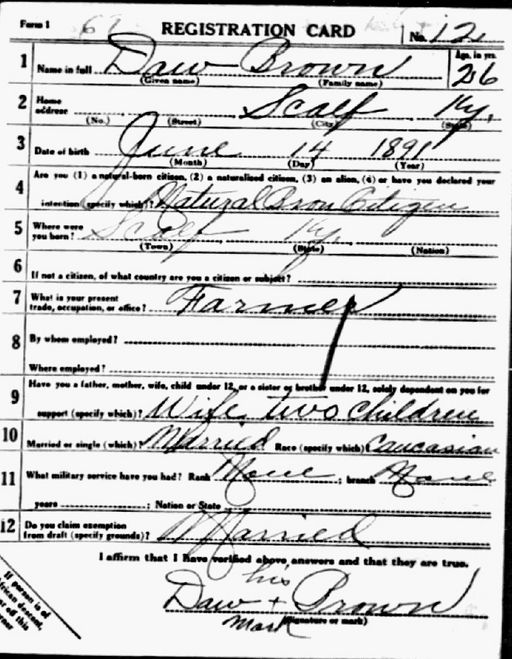 Form 1 REGISTRATION CARD No. 12
1 Name in full Daw Brown Age, in yrs. 26
(Given name) (Family name)
2 Home address Scalf Ky.
(No.) (Street) (City) (State)
3 Date of birth June 14 1891
(Month) (Day) (Year)
4 Are you (1) a natural-born citizen, (2) a naturalized citizen, (3) an alien, (4) or have you declared your
intention (specify which)? Natural Bron Citigen
5 Where were you born? Scalf Ky.
(Town) (State) (Nation)
6 If not a citizen, of what country are you a citizen or subject?
7 What is your present trade, occupation, or office? Farmer
8 By whom employed?
Where employed?
9 Have you a father, mother, wife, child under 12, or a sister or brother under 12, solely dependent on you for
support (specify which)? Wife two children
10 Married or single (which)? Married Race (specify which)? Caucasian
11 What military service have you had? Rank None ; branch None
years ; Nation or State
12 Do you claim exemption from draft (specify grounds)? Married
I affirm that I have verified above answers and that they are true.
his
Daw + Brown
mark (Signature or mark)
If person is of
African descent,
off this